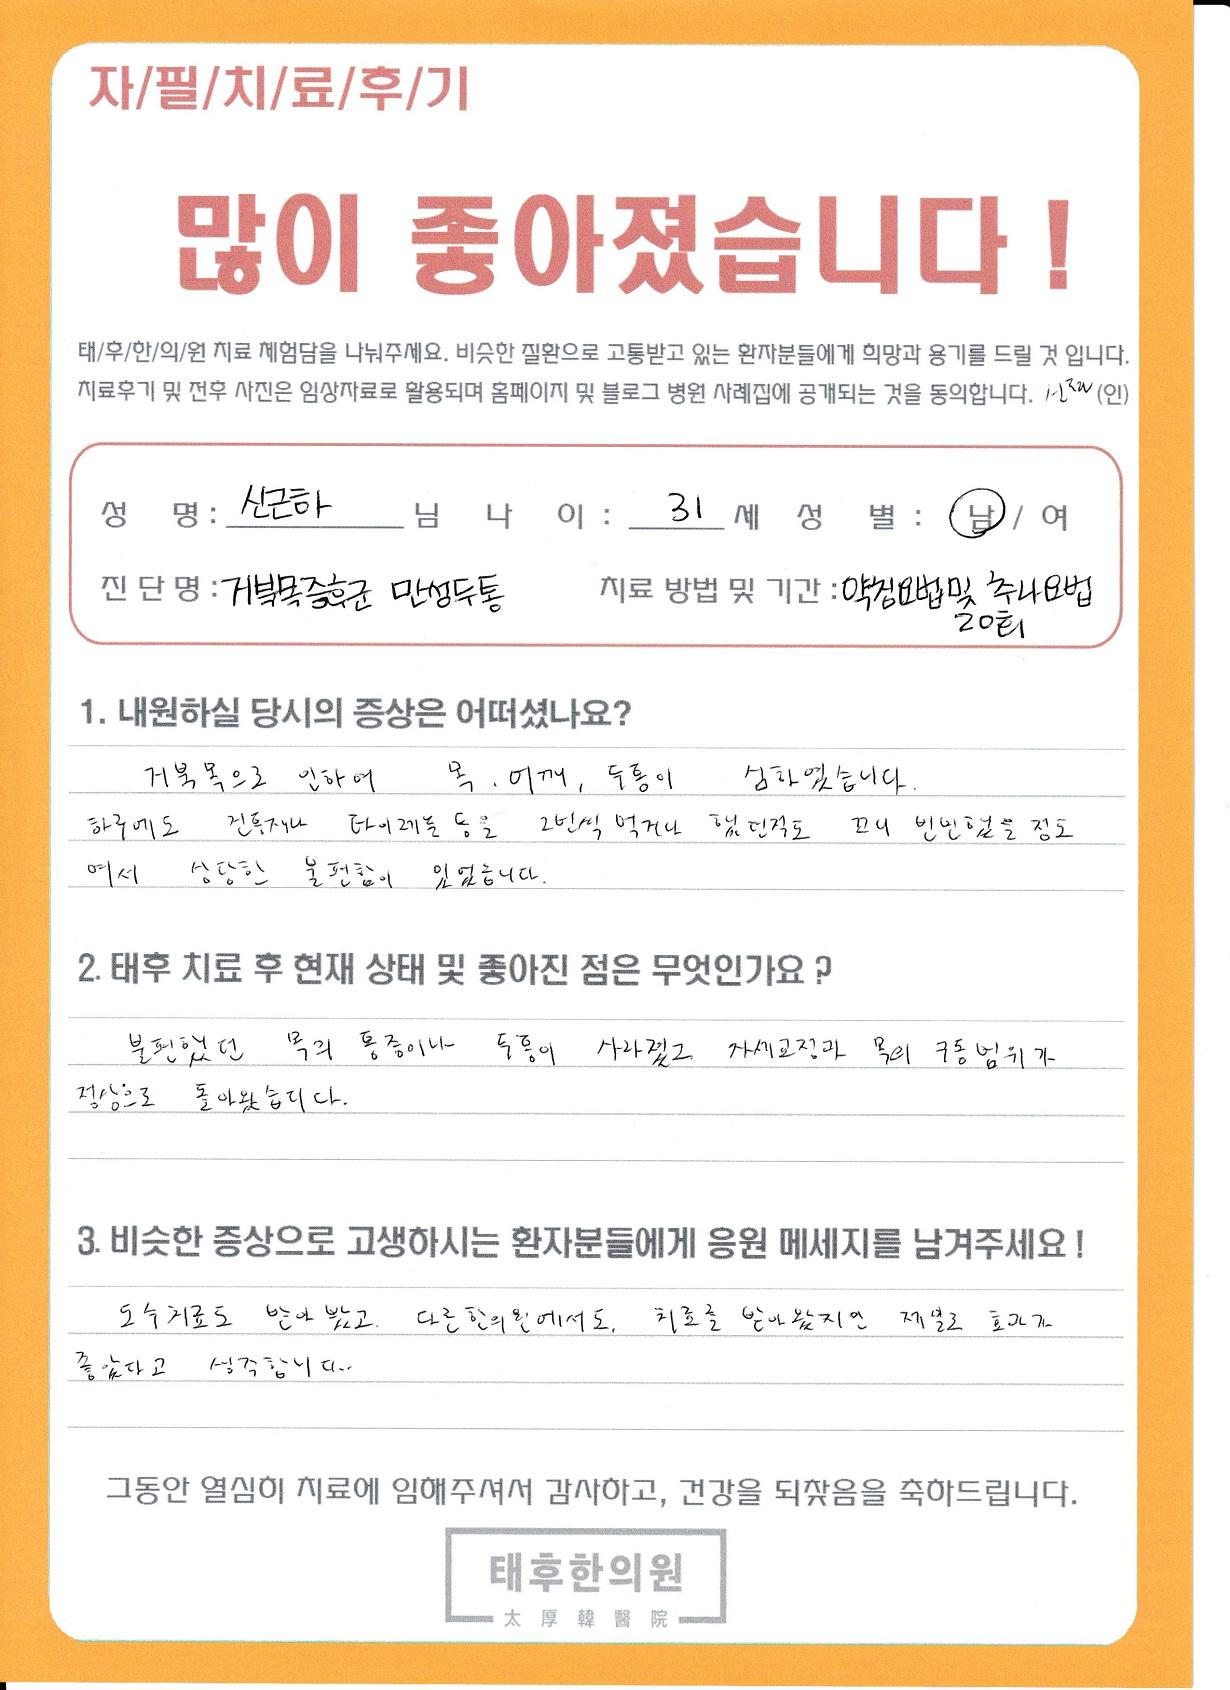 자/필/치/료/후/기
많이 좋아졌습니다 !
태/후/한/의/원 치료 체험담을 나눠주세요. 비슷한 질환으로 고통받고 있는 환자분들에게 희망과 용기를 드릴 것 입니다.
치료후기 및 전후 사진은 임상자료로 활용되며 홈페이지 및 블로그 병원 사례집에 공개되는 것을 동의합니다. (인)
성 명 : 신근하 님 나 이 : 31 세 성 별 : 남 / 여
진 단 명 : 거북목증후군 만성두통 치료 방법 및 기간 : 약침요법및 추나요법
20회
1. 내원하실 당시의 증상은 어떠셨나요?
거북목으로 인하여 목. 어깨, 두통이 심하였습니다.
하루에도 진통제나 타이레놀 등을 2번씩 먹거나 했던적도 꽤나 빈번했을 정도
여서 상당한 불편함이 있었습니다.
2. 태후 치료 후 현재 상태 및 좋아진 점은 무엇인가요 ?
불편했던 목의 통증이나 두통이 사라졌고 자세교정과 목의 구동범위가
정상으로 돌아왔습니다.
3. 비슷한 증상으로 고생하시는 환자분들에게 응원 메세지를 남겨주세요 !
도수치료도 받아 봤고. 다른한의원에서도, 치료를 받아봤지만 제일로 효과가
좋았다고 생각합니다..
그동안 열심히 치료에 임해주셔서 감사하고, 건강을 되찾음을 축하드립니다.
태후한의원
太 厚 韓 醫 院